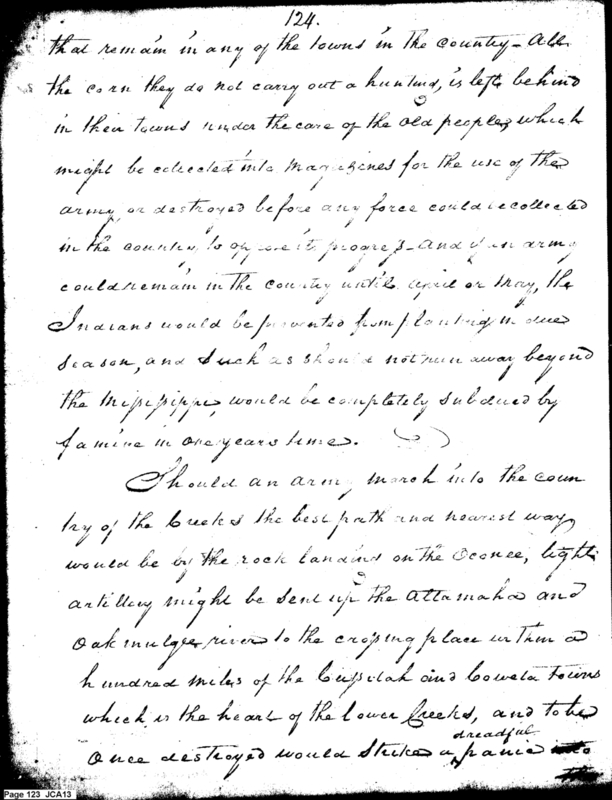 124.
that remain in any of the towns in the country - All
the corn they do not carry out a hunting, is left behind
in their towns under the care of the old people, which
might be collected into Magazines for the use of the
army, or destroyed before any force could be collected
in the country to oppose its progress - And if an army
could remain in the country until April or May, the
Indians would be prevented from planting in due
season, and such as should not run away beyond
the Missisippi, would be completely subdued by
famine in one years time.
Should an army march into the coun
try of the Creeks the best path and nearest way
would be by the rock landing on the Oconee, light
artillery might be sent up the Altamaha and
Oakmulgee river to the crossing place within a
hundred miles of the Cusitah and Coweta towns
which is the heart of the lower Creeks, and to be
dreadful
once destroyed would strike a panic into
the
Page 123 JCA13